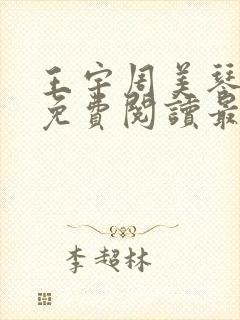 王宇周美琴
免費閱讀最
李超林